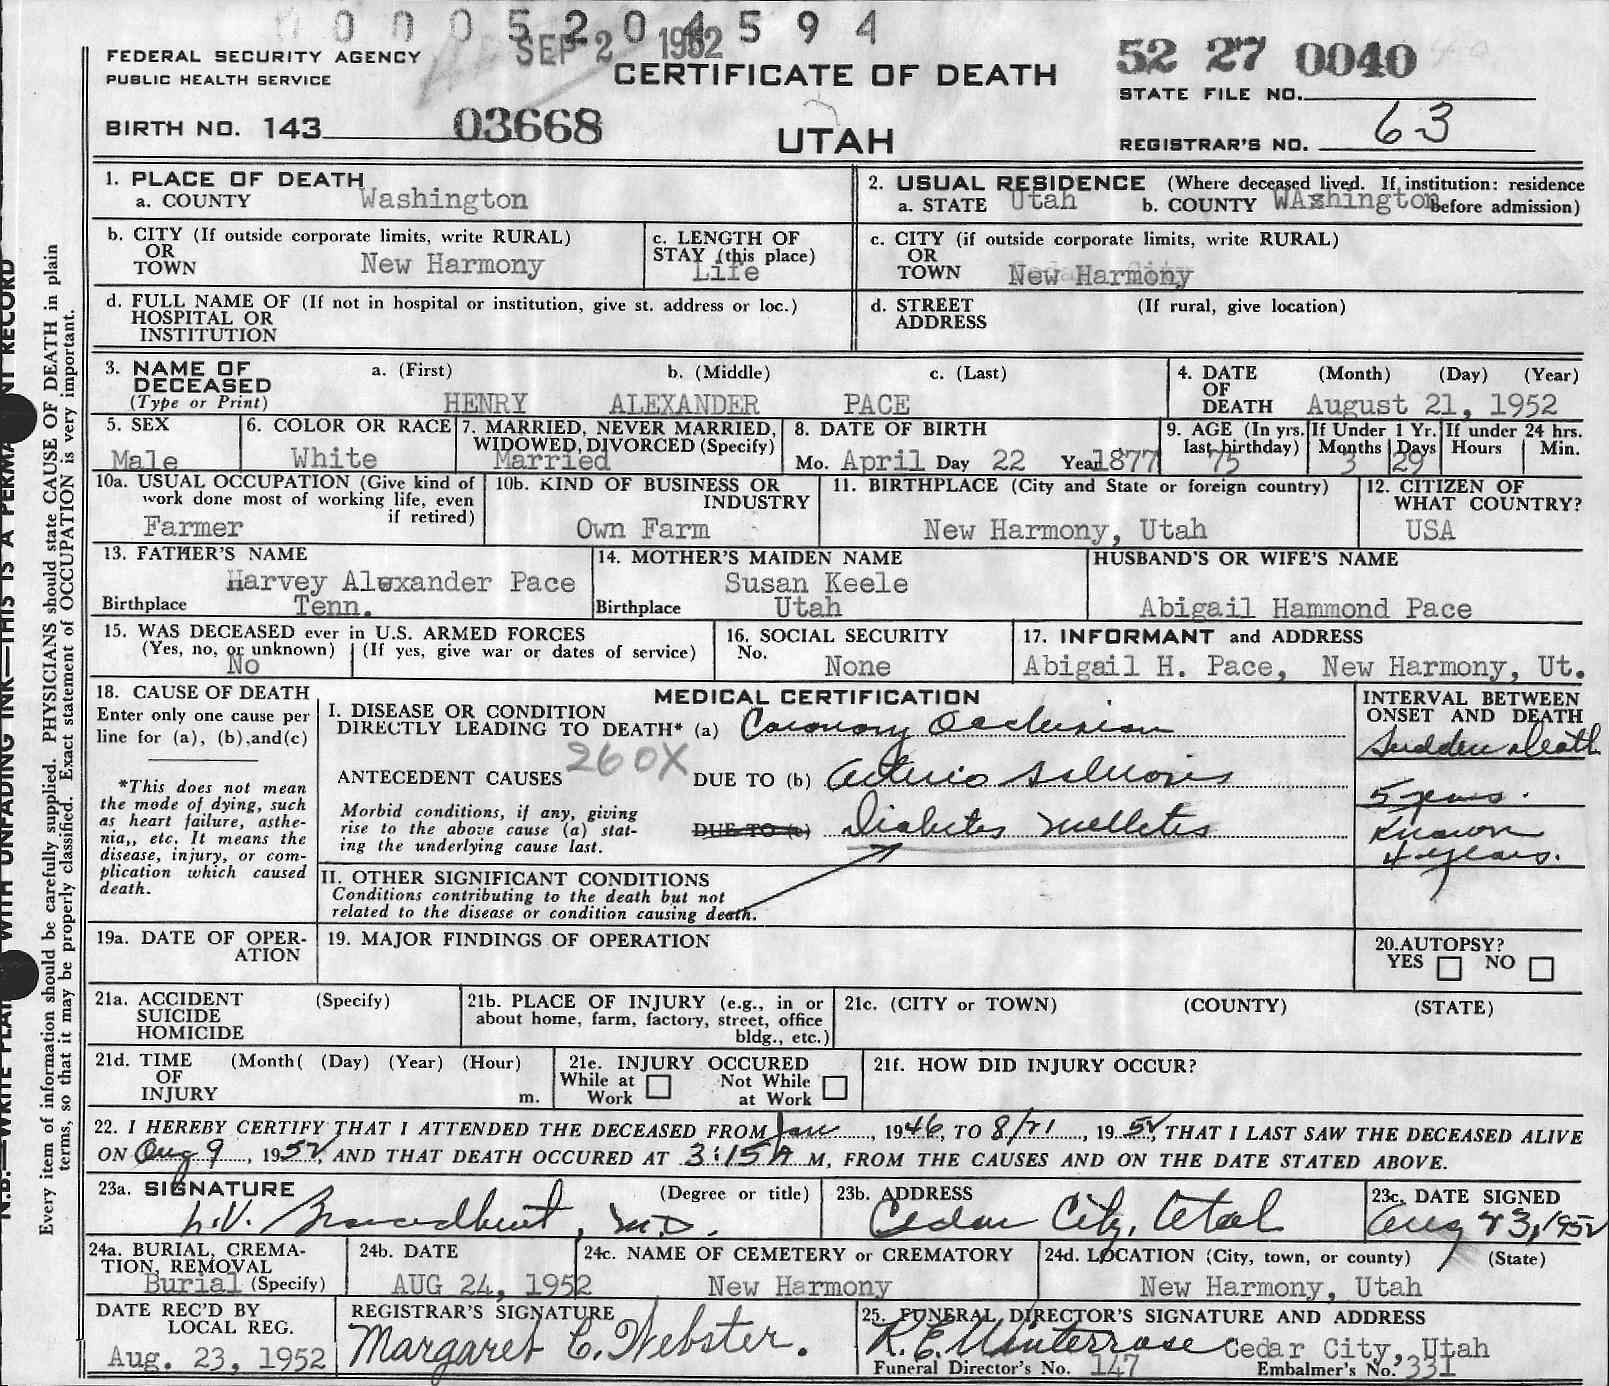 0 0 0 5 2 0 4 5 9 4
SEP 2 1952
FEDERAL SECURITY AGENCY
PUBLIC HEALTH SERVICE
CERTIFICATE OF DEATH
52 27 0040
STATE FILE NO.
BIRTH NO. 143 03668
UTAH
REGISTRAR'S NO. 63
1. PLACE OF DEATH
a. COUNTY Washington
2. USUAL RESIDENCE (Where deceased lived. If institution: residence
a. STATE Utah b. COUNTY WAshington before admission)
b. CITY (If outside corporate limits, write RURAL)
OR
TOWN New Harmony
c. LENGTH OF
STAY (this place)
Life
c. CITY (if outside corporate limits, write RURAL)
OR
TOWN New Harmony
d. FULL NAME OF (If not in hospital or institution, give st. address or loc.)
HOSPITAL OR
INSTITUTION
d. STREET (If rural, give location)
ADDRESS
3. NAME OF a. (First) b. (Middle) c. (Last)
DECEASED
(Type or Print) HENRY ALEXANDER PACE
4. DATE (Month) (Day) (Year)
OF
DEATH August 21, 1952
5. SEX
Male
6. COLOR OR RACE
White
7. MARRIED, NEVER MARRIED,
WIDOWED, DIVORCED (Specify)
Married
8. DATE OF BIRTH
Mo. April Day 22 Year 1877
9. AGE (In yrs. last birthday) 75
If Under 1 Yr. Months 3 Days 29
If under 24 hrs. Hours Min.
10a. USUAL OCCUPATION (Give kind of
work done most of working life, even
if retired)
Farmer
10b. KIND OF BUSINESS OR
INDUSTRY
Own Farm
11. BIRTHPLACE (City and State or foreign country)
New Harmony, Utah
12. CITIZEN OF
WHAT COUNTRY?
USA
13. FATHER'S NAME
Harvey Alexander Pace
Birthplace Tenn.
14. MOTHER'S MAIDEN NAME
Susan Keele
Birthplace Utah
HUSBAND'S OR WIFE'S NAME
Abigail Hammond Pace
15. WAS DECEASED ever in U.S. ARMED FORCES
(Yes, no, or unknown) (If yes, give war or dates of service)
No
16. SOCIAL SECURITY
No.
None
17. INFORMANT and ADDRESS
Abigail H. Pace, New Harmony, Ut.
18. CAUSE OF DEATH
Enter only one cause per
line for (a), (b),and(c)
*This does not mean
the mode of dying, such
as heart failure, asthe-
nia,, etc. It means the
disease, injury, or com-
plication which caused
death.
MEDICAL CERTIFICATION
I. DISEASE OR CONDITION
DIRECTLY LEADING TO DEATH* (a) Coronary Occlusion
ANTECEDENT CAUSES 260X DUE TO (b) Arterio Sclerosis
Morbid conditions, if any, giving
rise to the above cause (a) stat-
ing the underlying cause last.
DUE TO (c) Diabetes melletes
II. OTHER SIGNIFICANT CONDITIONS
Conditions contributing to the death but not
related to the disease or condition causing death.
INTERVAL BETWEEN
ONSET AND DEATH
Sudden death
5 years.
Known
4 years.
19a. DATE OF OPER-
ATION
19. MAJOR FINDINGS OF OPERATION
20.AUTOPSY?
YES NO
21a. ACCIDENT (Specify)
SUICIDE
HOMICIDE
21b. PLACE OF INJURY (e.g., in or
about home, farm, factory, street, office
bldg., etc.)
21c. (CITY or TOWN) (COUNTY) (STATE)
21d. TIME (Month( (Day) (Year) (Hour)
OF
INJURY m.
21e. INJURY OCCURED
While at Work
Not While at Work
21f. HOW DID INJURY OCCUR?
22. I HEREBY CERTIFY THAT I ATTENDED THE DECEASED FROM Jan, 1946, TO 8/21, 1952, THAT I LAST SAW THE DECEASED ALIVE
ON Aug 9, 1952, AND THAT DEATH OCCURED AT 3:15 A M, FROM THE CAUSES AND ON THE DATE STATED ABOVE.
23a. SIGNATURE (Degree or title)
L.V. Broadbent, M.D.
23b. ADDRESS
Cedar City, Utah
23c. DATE SIGNED
Aug 23, 1952
24a. BURIAL, CREMA-
TION, REMOVAL
Burial (Specify)
24b. DATE
AUG 24, 1952
24c. NAME OF CEMETERY or CREMATORY
New Harmony
24d. LOCATION (City, town, or county) (State)
New Harmony, Utah
DATE REC'D BY
LOCAL REG.
Aug. 23, 1952
REGISTRAR'S SIGNATURE
Margaret C. Webster.
25. FUNERAL DIRECTOR'S SIGNATURE AND ADDRESS
R.E. Winterrose Cedar City, Utah
Funeral Director's No. 147 Embalmer's No. 331
Every item of information should be carefully supplied. PHYSICIANS should state CAUSE OF DEATH in plain
terms, so that it may be properly classified. Exact statement of OCCUPATION is very important.
WITH UNFADING INK—THIS IS A PERMA NT RECORD